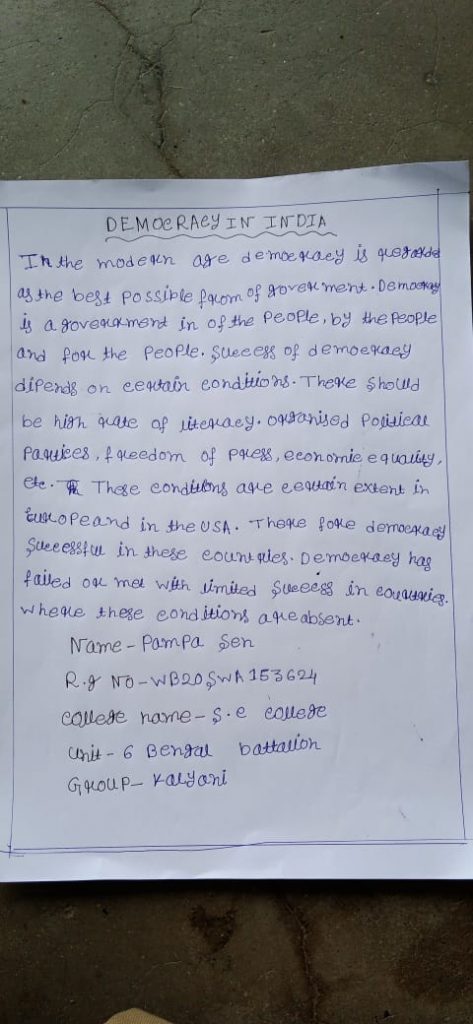 DEMOCRACY IN INDIA
In the modern age democracy is regarded
as the best possible from of goverment. Democracy
is a goverment in of the People, by the People
and for the People. Success of democracy
dipends on certain conditions. There should
be high rate of literacy. organised Political
Partices, freedom of Press, economic equality,
etc. These conditions are certain extent in
Europeand in the USA. There fore democracy
Successful in these countries. Democracy has
failed or met with limited success in countries.
where these conditions are absent.
Name - Pampa Sen
R.g No - WB20SWA153624
college name - S.e college
Unit - 6 Bengal battalion
Group - Kalyani